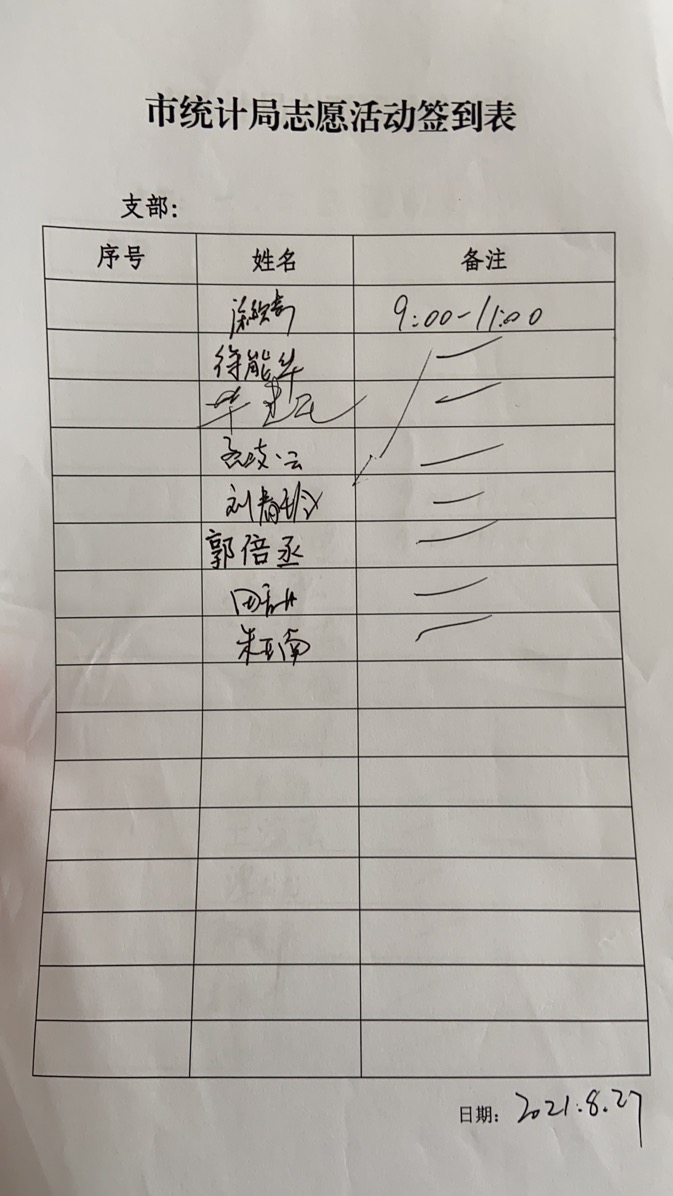 市统计局志愿活动签到表
支部:
序号 姓名 备注
9:00-11:00
徐能华
刘春玲
郭倍丞
朱亚南
日期: 2021.8.27